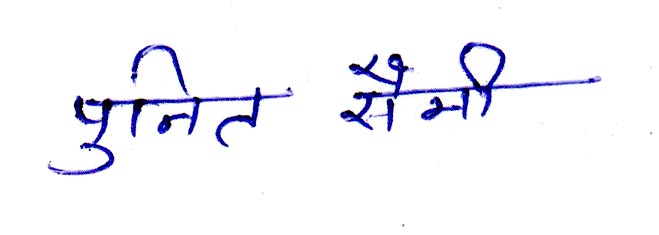 पुनित सैनी